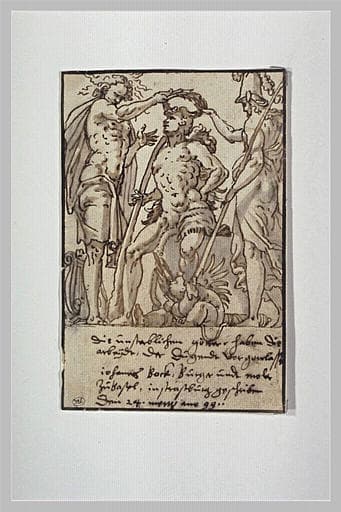 die unsterblichen götter haben die
arbeide der dugende vor
iohanes Bock Burger unde moler
zu basel, in strasburg geschriben
den 24. ano 99.